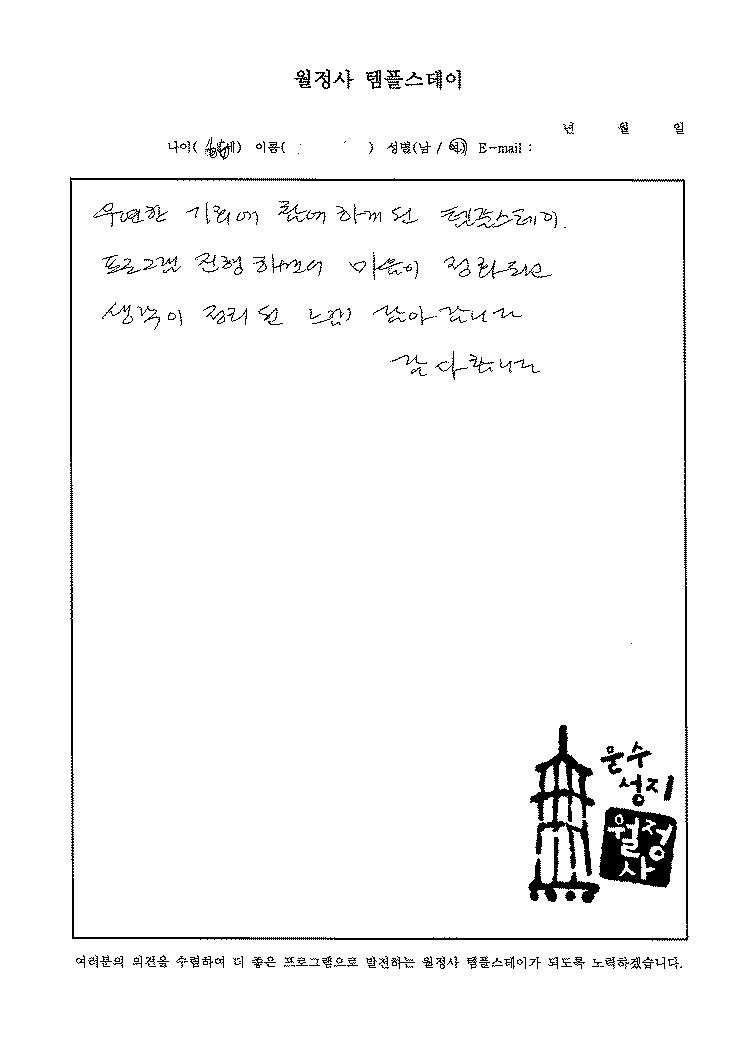 월정사 템플스테이
년 월 일
나이( ) 이름( ) 성별(남 / 여) E-mail :
우연한 기회에 참여하게 된 템플스테이.
프로그램 진행하면서 마음이 정화되고
생각이 정리된 느낌 담아갑니다
감사합니다
문수
성지
월정
사
여러분의 의견을 수렴하여 더 좋은 프로그램으로 발전하는 월정사 템플스테이가 되도록 노력하겠습니다.